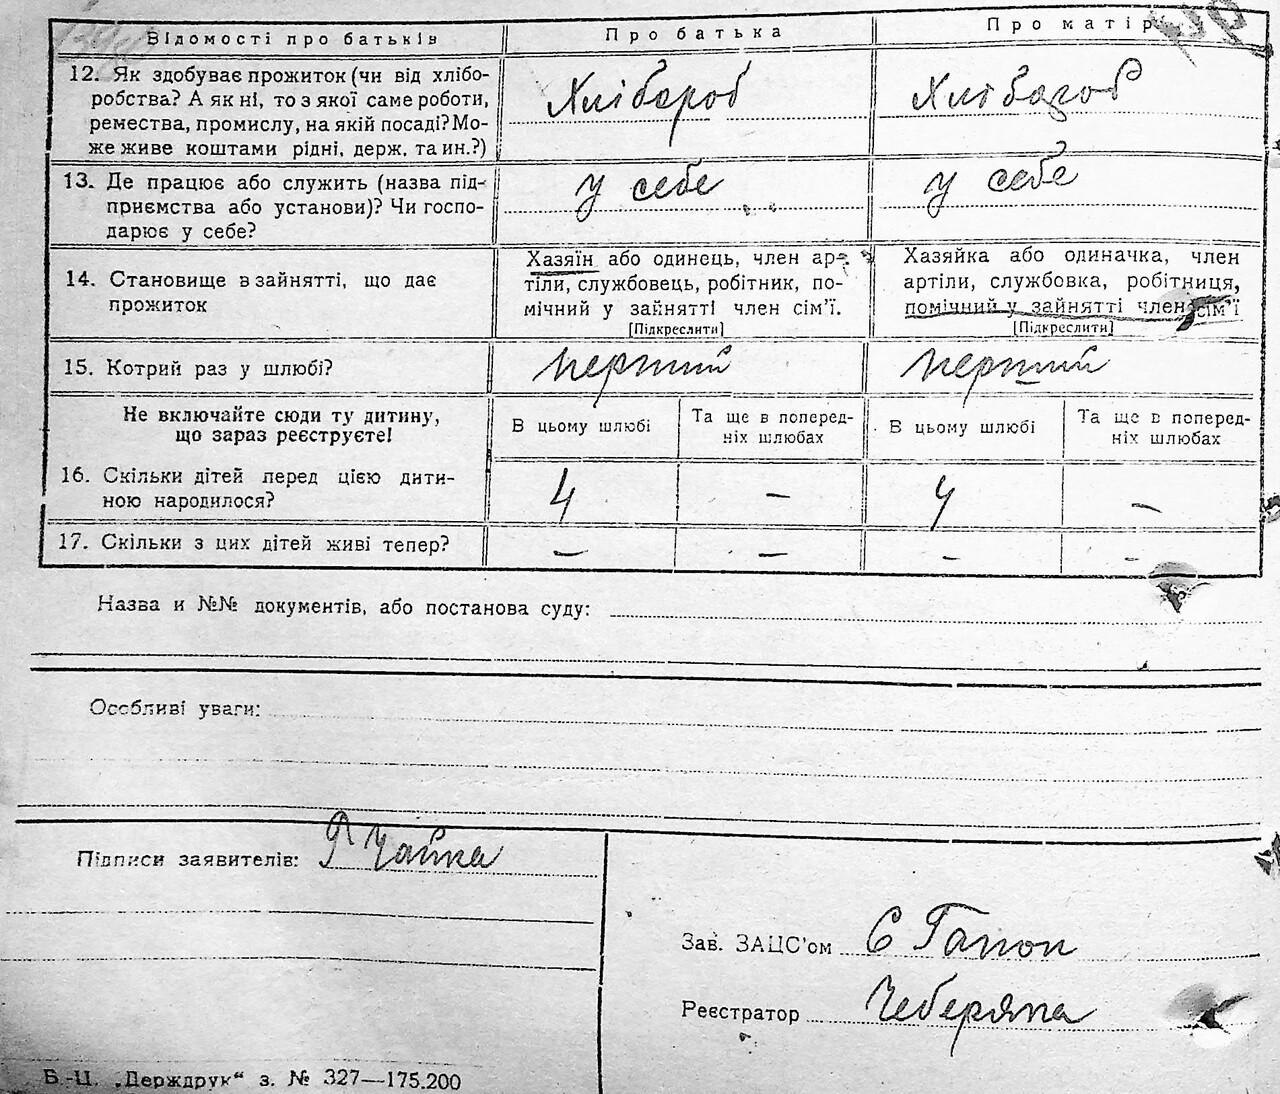 Відомості про батьків
Про батька
Про матір
12. Як здобуває прожиток (чи від хлібо-
робства? А як ні, то з якої саме роботи,
ремества, промислу, на якій посаді? Мо-
же живе коштами рідні, держ. та ин.?)
Хлібороб
Хлібороб
13. Де працює або служить (назва під-
приємства або установи)? Чи госпо-
дарює у себе?
у себе
у себе
14. Становище в зайнятті, що дає
прожиток
Хазяїн або одинець, член ар-
тіли, службовець, робітник, по-
мічний у зайнятті член сім'ї.
[Підкреслити]
Хазяйка або одиначка, член
артіли, службовка, робітниця,
помічний у зайнятті член сім'ї
[Підкреслити]
15. Котрий раз у шлюбі?
перший
перший
Не включайте сюди ту дитину,
що зараз реєструєте!
В цьому шлюбі
Та ще в поперед-
ніх шлюбах
В цьому шлюбі
Та ще в поперед-
ніх шлюбах
16. Скільки дітей перед цією дити-
ною народилося?
4
–
4
–
17. Скільки з цих дітей живі тепер?
–
–
–
–
Назва и №№ документів, або постанова суду:
Особливі уваги:
Підписи заявителів: Чайка
Зав. ЗАЦС'ом С Гапон
Реєстратор
Б.-Ц. „Держдрук“ з. № 327—175.200